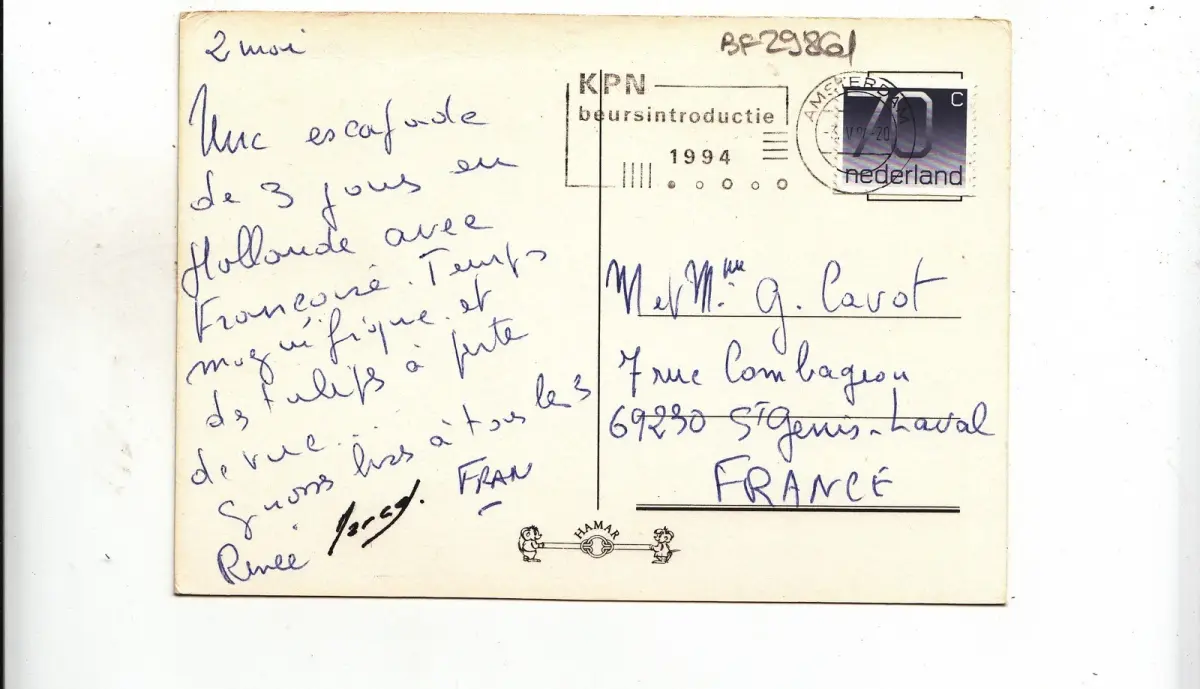 2 mai
Une escapade
de 3 jours en
Hollande avec
Françoise. Temps
magnifique et
des tulips à perte
de vue...
gros bises à tous les 3
Renée
FRAN
BF29861
KPN
beursintroductie
1994
AMSTERDAM
70 C
nederland
M et Mme G. Cavot
7 rue Combageon
69230 St Genis-Laval
FRANCE
HAMAR